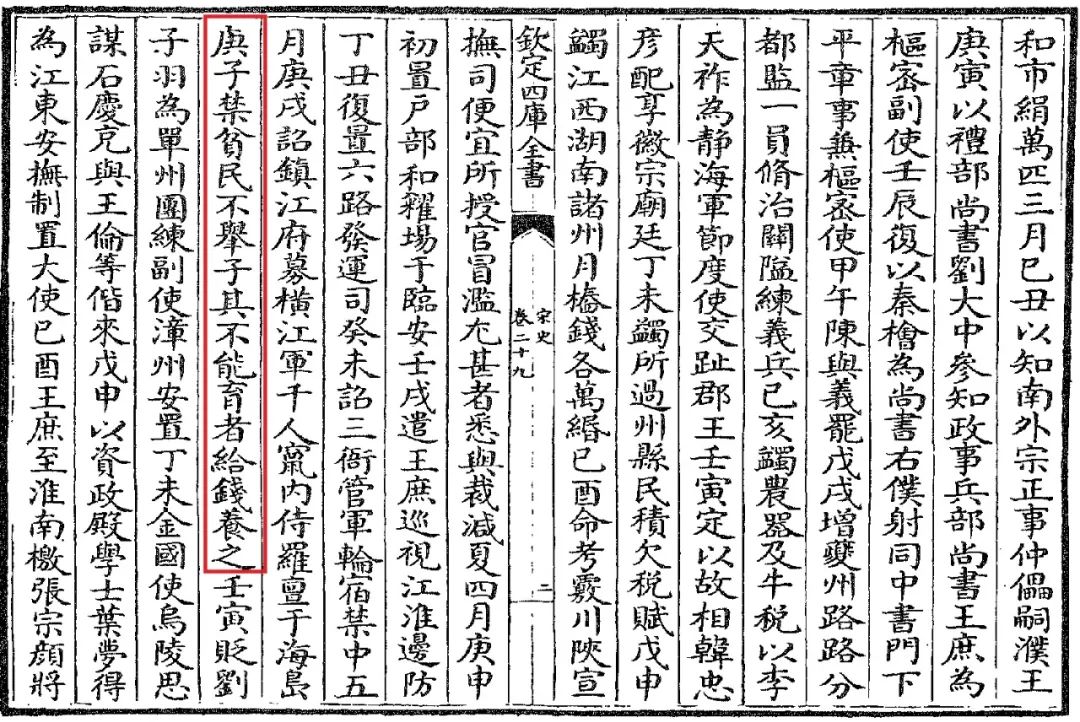 和市絹萬匹三月己丑以知南外宗正事仲儡嗣濮王
庚寅以禮部尚書劉大中參知政事兵部尚書王庶為
樞宻副使壬辰復以秦檜為尚書右僕射同中書門下
平章事兼樞宻使甲午陳與義罷戊戌增夔州路路分
都監一員脩治關隘練義兵己亥蠲農器及牛税以李
天祚為静海軍節度使交趾郡王壬寅定以故相韓忠
彦配享徽宗廟廷丁未蠲所過州縣民積欠税賦戊申
蠲江西湖南諸州月樁錢各萬緡己酉命考覈川陜宣
欽定四庫全書
宋史
卷二十九
二
撫司便宜所授官冒濫尤甚者悉與裁減夏四月庚申
初置戸部和糴場于臨安壬戌遣王庶巡視江淮邊防
丁丑復置六路發運司癸未詔三衙管軍輪宿禁中五
月庚戌詔鎮江府募横江軍千人竄内侍羅亶于海島
庚子禁貧民不舉子其不能育者給錢養之壬寅貶劉
子羽為單州團練副使漳州安置丁未金國使烏陵思
謀石慶克與王倫等偕來戊申以資政殿學士葉夢得
為江東安撫制置大使己酉王庶至淮南檄張宗顔將